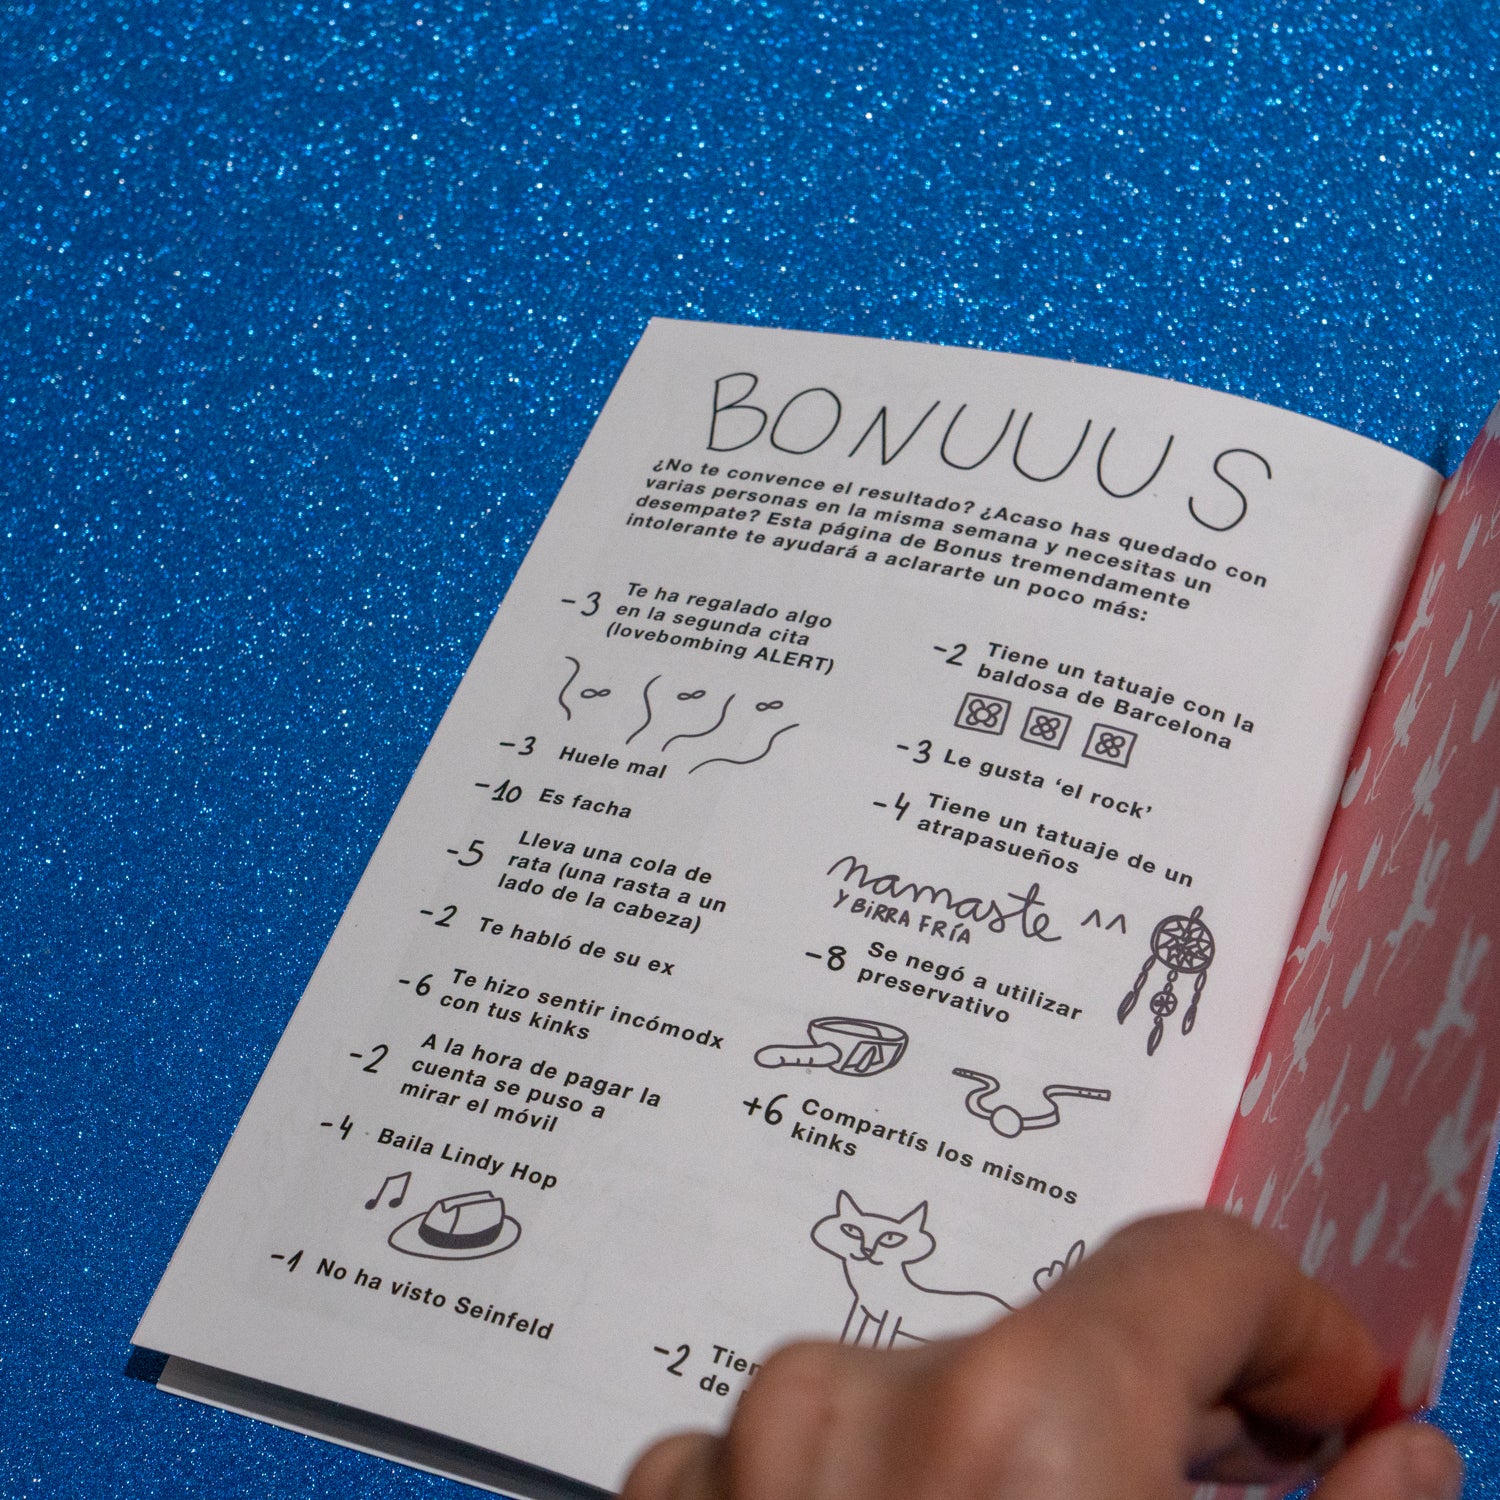 BONUUUS
¿No te convence el resultado? ¿Acaso has quedado con
varias personas en la misma semana y necesitas un
desempate? Esta página de Bonus tremendamente
intolerante te ayudará a aclararte un poco más:
-3 Te ha regalado algo
en la segunda cita
(lovebombing ALERT)
-3 Huele mal
-10 Es facha
-5 Lleva una cola de
rata (una rasta a un
lado de la cabeza)
-2 Te habló de su ex
-6 Te hizo sentir incómodx
con tus kinks
-2 A la hora de pagar la
cuenta se puso a
mirar el móvil
-4 Baila Lindy Hop
-1 No ha visto Seinfeld
-2 Tiene un tatuaje con la
baldosa de Barcelona
-3 Le gusta ‘el rock’
-4 Tiene un tatuaje de un
atrapasueños
namaste ^^
Y BIRRA FRÍA
-8 Se negó a utilizar
preservativo
+6 Compartís los mismos
kinks
-2
de